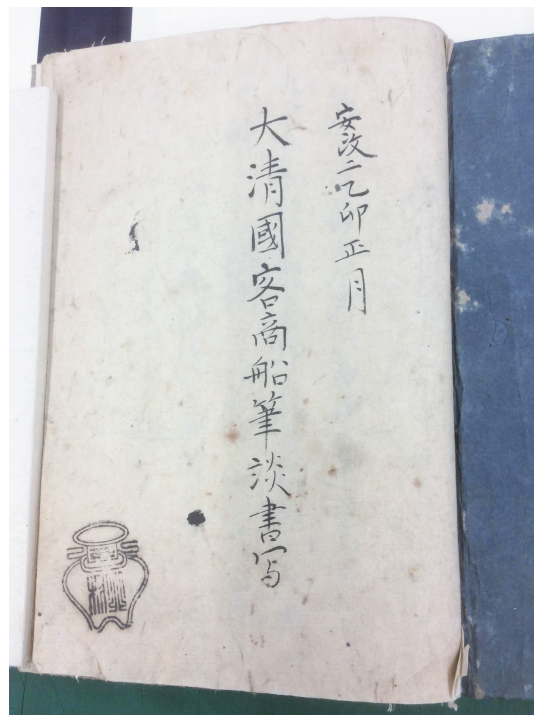 安政二乙卯正月
大清國客商船筆談書写